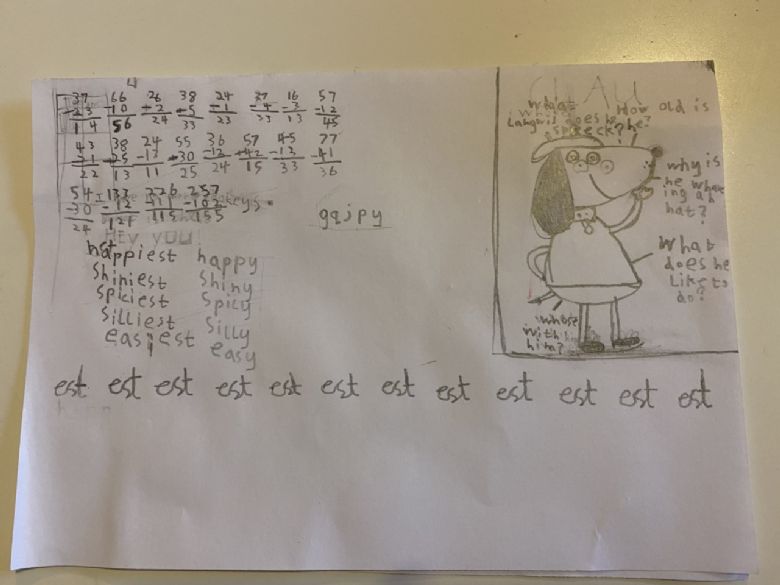 37 66 26 38 24 27 16 57
-23 -10 -2 -5 -1 -4 -3 -12
14 56 24 33 23 23 13 45
43 38 24 55 36 57 45 77
-21 -25 -13 -30 -12 -42 -12 -41
22 13 11 25 24 15 33 36
54 133 226 257
-30 -12 -111 -102
24 121 115 155
keys.
gqjpy
Hey you!
happiest happy
shiniest shiny
spiciest spicy
silliest silly
easiest easy
est est est est est est est est est est est est
What
Langwis does he
speeck?
How old is
he?
why is
he whare
ing a h
hat?
What
does he
Like to
do?
whose
with
him?